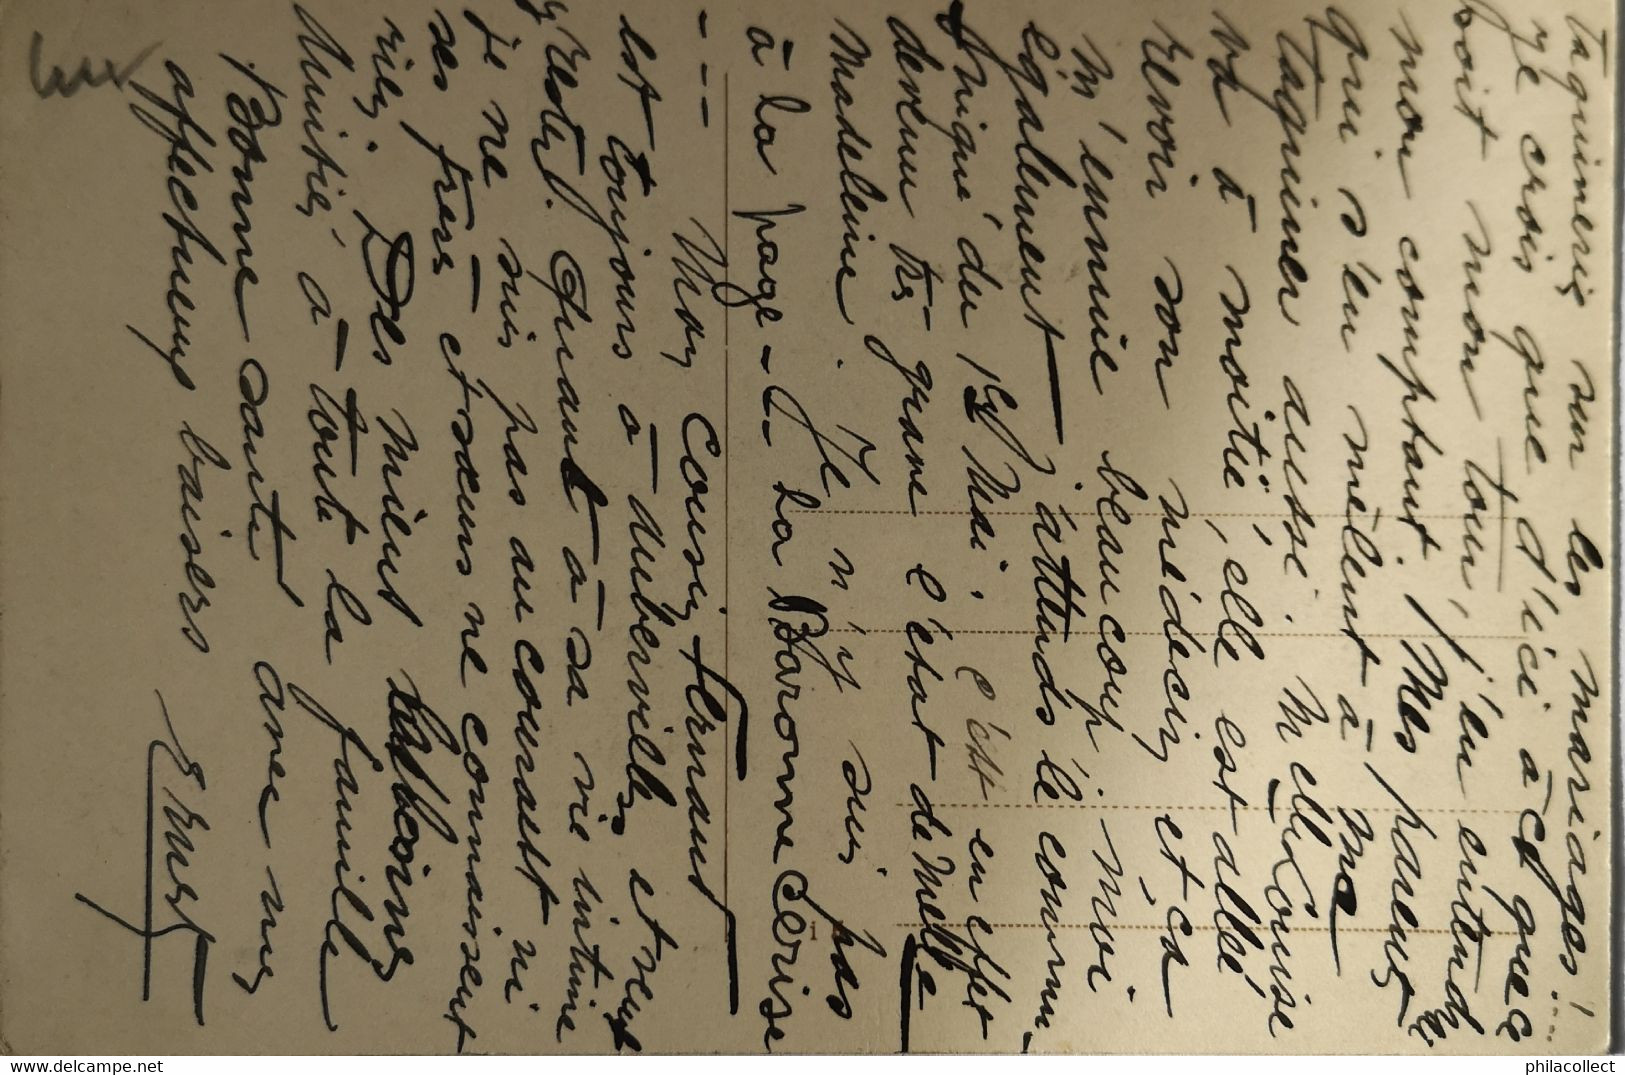 taquineries sur les mariages!....
je crois que d'ici à ce que ce
soit mon tour, j'en entendrai
mon comptant. Mes parents
qui s'en mêlent à me
taquiner aussi. Melle Louise
va à moitié, elle est allée
revoir son médecin et ça
m'ennuie beaucoup. moi
également j'attends le commu-
niqué du 1er Mai. c'est en effet
devenu très grave l'état de Melle
Madeleine. Je n'y suis pas
à la page - la Baronne Cerise
- - - Mon Cousin Fernand
est toujours à Auberville et veut
y rester. Quant à sa vie intime
je ne suis pas au courant ni
ses frères et sœurs ne connaissent
rien. Des miens
Amitiés à toute la famille
Bonne santé avec mes
affectueux baisers
Ernest
philacollect